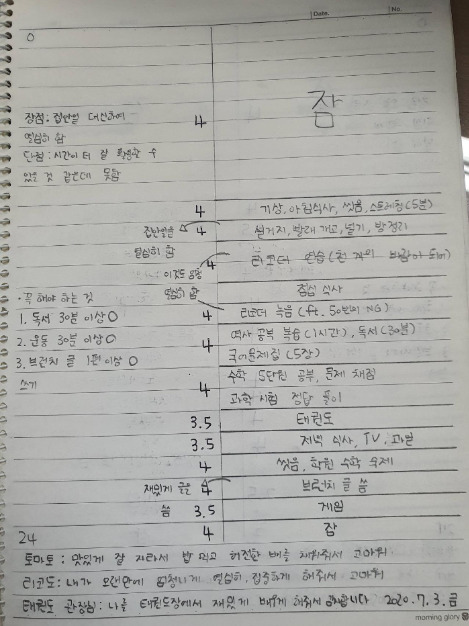 Date.
No.
0
장점: 집안일 대신하여 4 잠
열심히 함
단점: 시간이 더 잘 활용할 수
있을 것 같은데 못함
4 기상, 아침식사, 씻음, 스트레칭(5분)
집안일을 4 설거지, 빨래 개고, 널기, 방정리
열심히 함
4 리코더 연습(천 개의 바람이 되어)
이것도
열심히 함 점심 식사
·꼭 해야 하는 것 4 리코더 녹음(ft. 50번의 NG)
1. 독서 30분 이상 O 역사 공부 복습(1시간), 독서(30분)
2. 운동 30분 이상 O 4 국어문제집(5장)
3. 브런치 글 1편 이상 O 수학 5단원 공부, 문제 채점
쓰기 4 과학 시험 정답 풀이
3.5 태권도
3.5 저녁 식사, TV, 과일
4 씻음, 학원 수학 숙제
재밌게 글을 4 브런치 글 씀
씀 3.5 게임
24 4 잠
토마토: 맛있게 잘 자라서 밥 먹고 허전한 배를 채워줘서 고마워
리코더: 내가 오랜만에 엄청나게 열심히, 집중하게 해줘서 고마워
태권도 관장님: 나를 태권도장에서 재밌게 배우게 해줘서 감사합니다 2020.7.3.금
morning glory